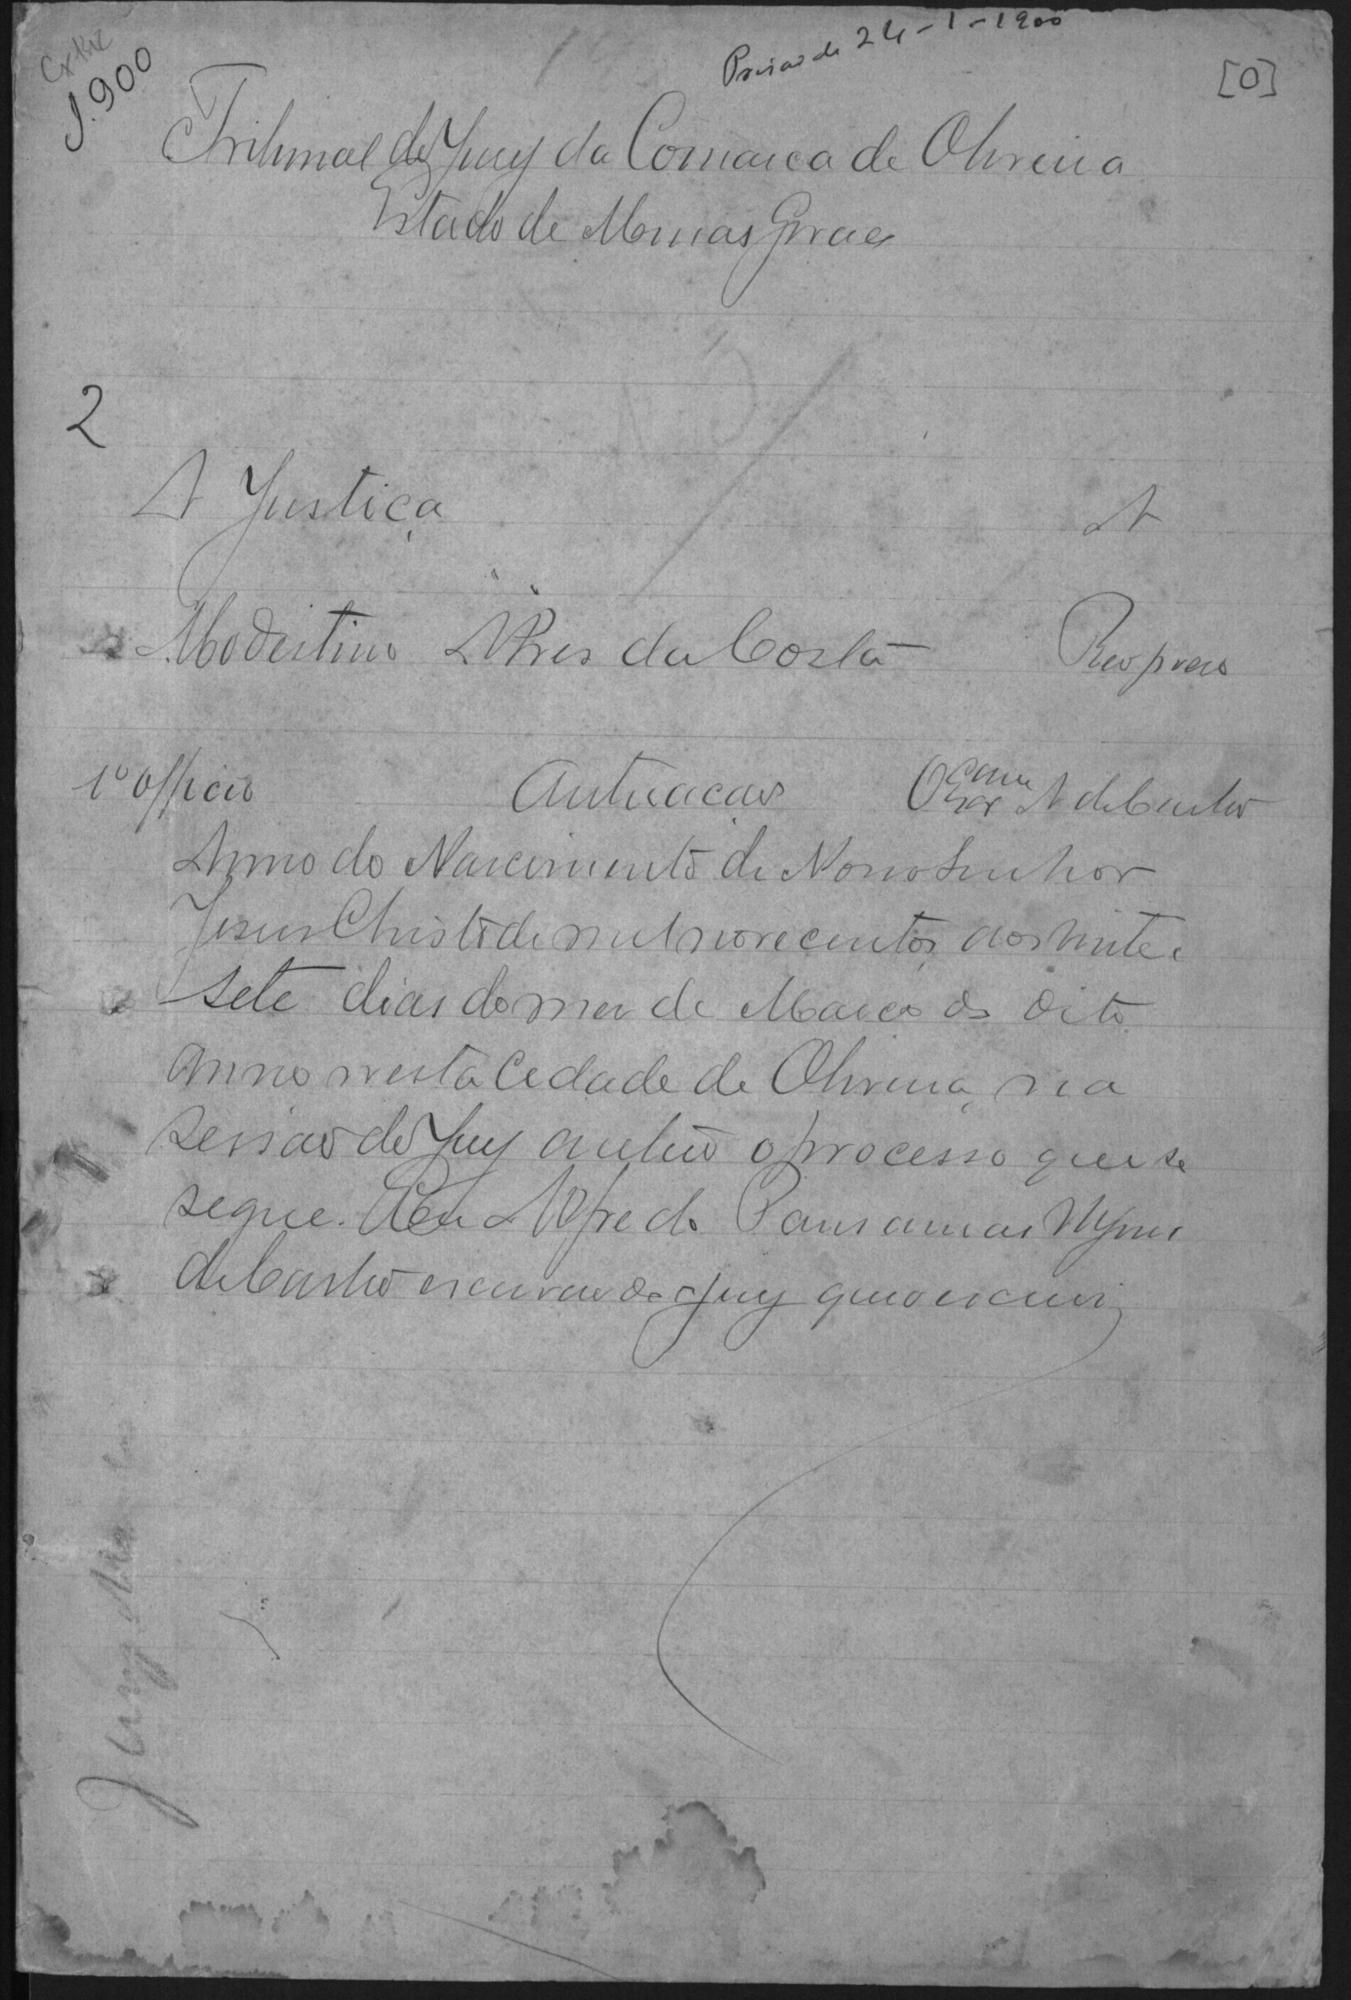 Prisão de 24-1-1900
[0]
1.900
Tribunal do Jury da Comarca de Oliveira
Estado de Minas Geraes
2
A Justiça A
Modestino Alves da Costa Reo preso
1º officio Autuação O Escram A de Castro
Anno do Nascimento de Nosso Senhor
Jesus Christo de mil novecentos, aos vinte e
sete dias do mez de Março do dito
anno nesta Cidade de Oliveira, na
sessão do Jury autuo o processo que se
segue. Eu Alfredo
de Castro escrivão do Jury que o escrevi
Jury